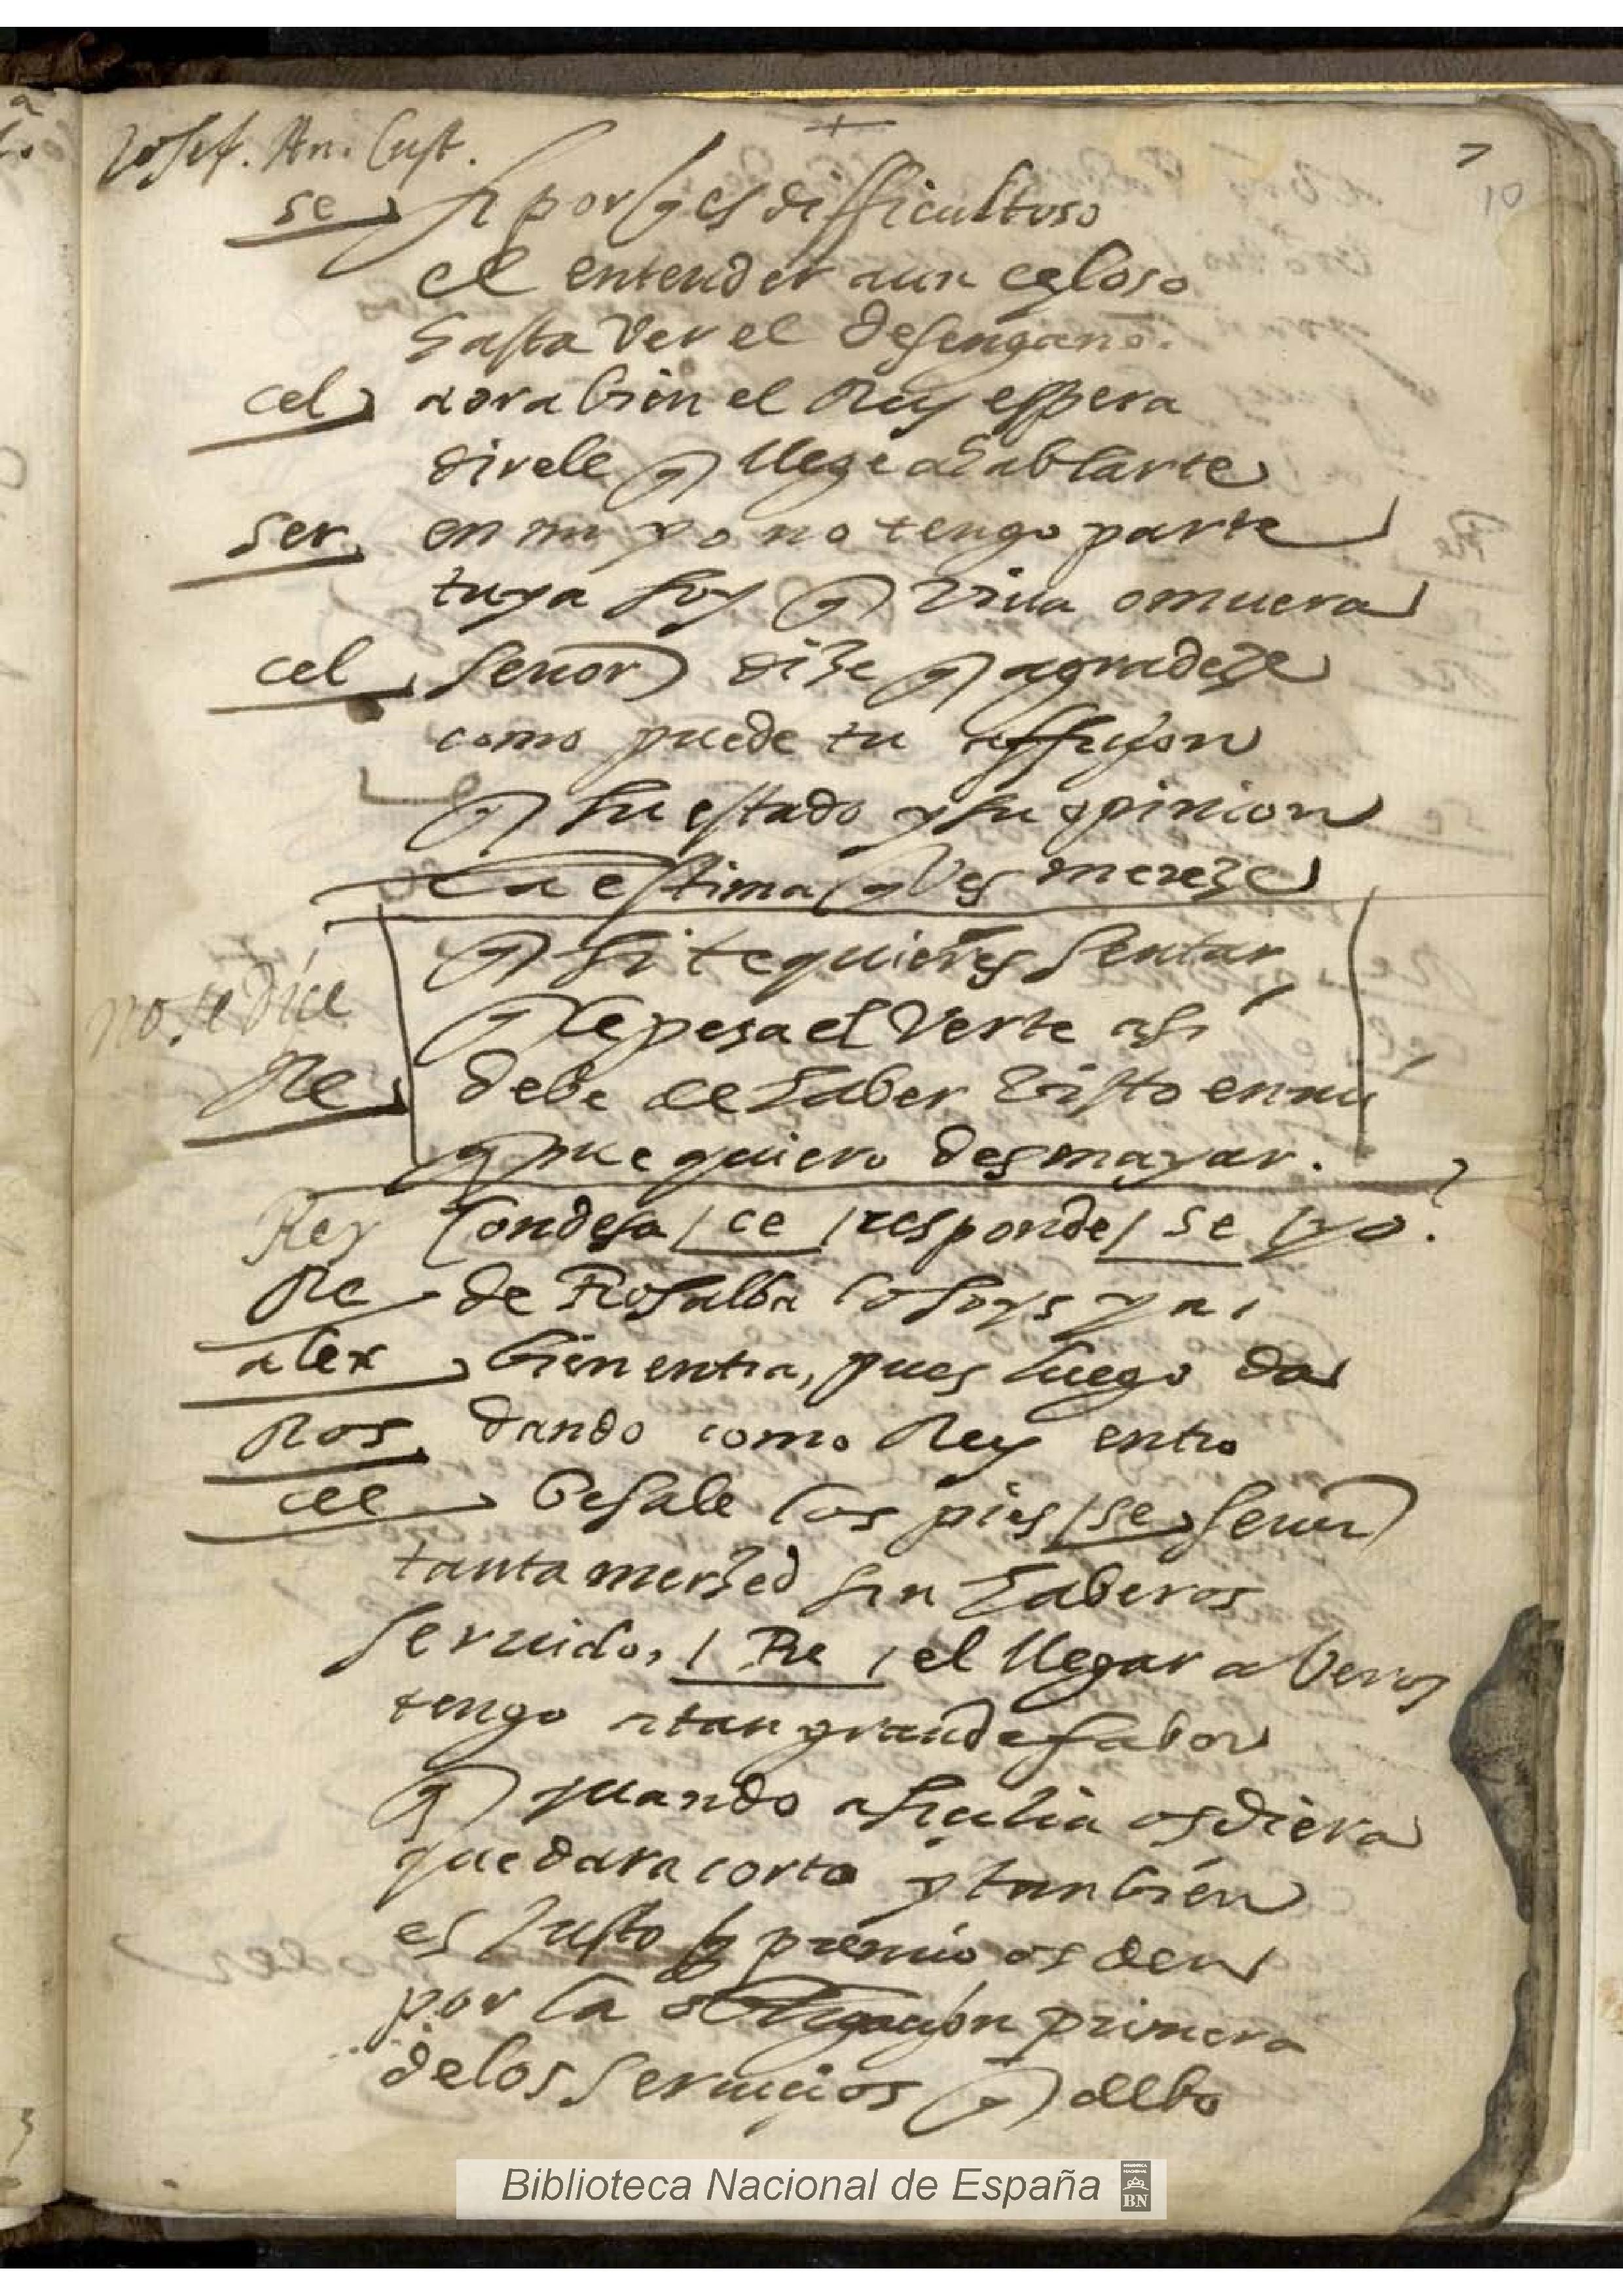 Josef. An. Cust.
7
10
se si porq es difficultoso
el entender a un celoso
hasta ver el desengaño.
cel aora bien el Rey espera
direle q llege a hablarte
ser en mi yo no tengo parte
tuya soy q viua o muera
cel señor dize q agradeze
como puede tu affiçion
q su estado y su opinion
la estima q ves mereze
q si te quieres sentar
no se dice q le pesa el verte asi
Re debe de haber visto en mi
q me quiero desmayar.
Rey Condesa / ce / responde / se / yo?
Re de Rosalba lo soys ya
alex bien entra, pues luego da
Ros dando como Rey entro
cel besale los pies / se señor
tanta merzed sin haberos
seruido, / Re / el llegar a veros
tengo a tan grande fabor
q quando a Siçilia os diera
quedara corto y tanbien
es justo q premio os den
por la obligaçion primera
de los seruiçios q debo
Biblioteca Nacional de España
BN